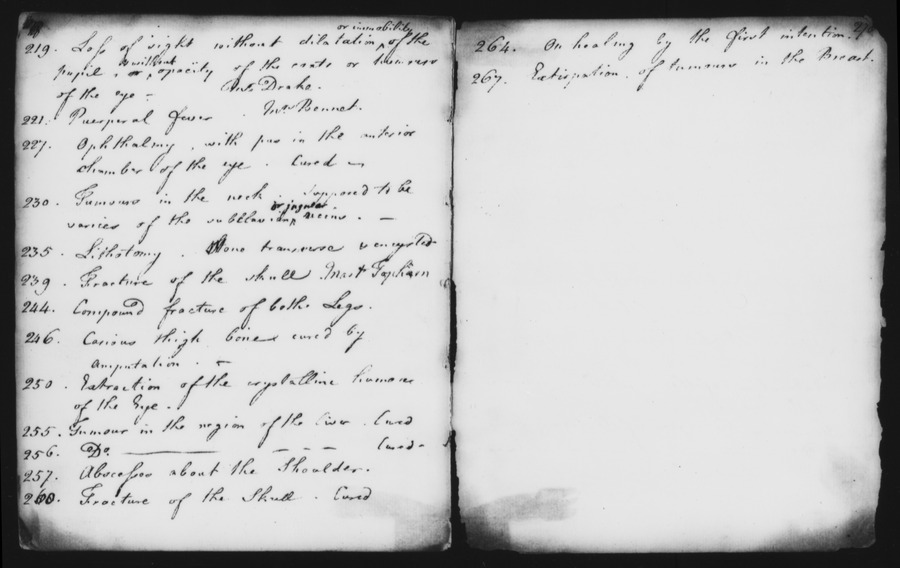 or immobility
219. Loss of sight without dilatation of the
pupil, without or opacity of the coats or humours
of the eye - Mrs Drake.
221. Puerperal fever. Mrs Bennet.
227. Ophthalmy, with pus in the anterior
chamber of the eye. Cured -
230. Tumours in the neck. Supposed to be
or jugular
varices of the subclavian veins. -
235. Lithotomy. Stone transverse & encysted
239. Fracture of the skull Mast Topham
244. Compound fracture of both Legs.
246. Carious thigh bone cured by
amputation. -
250. Extraction of the crystalline humour
of the Eye.
255. Tumour in the region of the liver. Cured
256. Do. ——— - - - Cured -
257. Abscesses about the Shoulder.
260. Fracture of the Skull. Cured
264. On healing by the first intention.
267. Extirpation of tumours in the Breast.